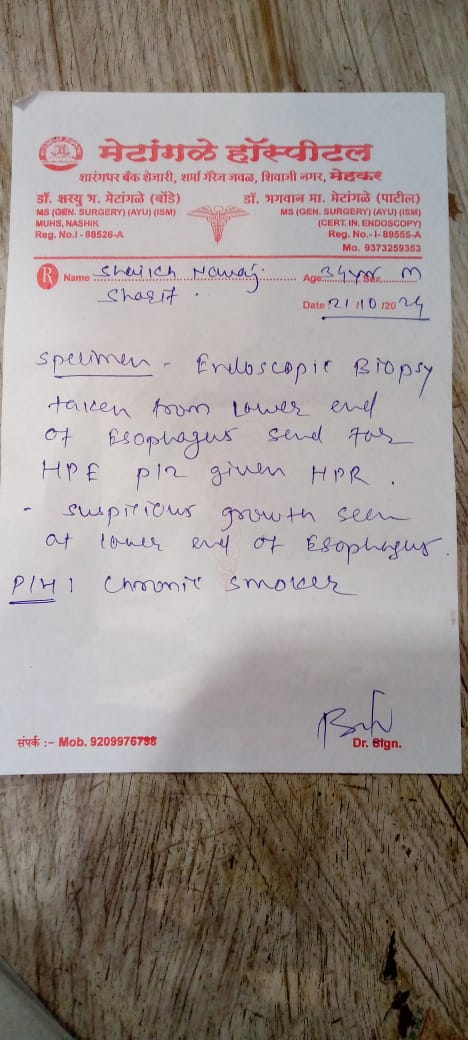 मेटांगळे हॉस्पीटल
शारंगधर बँक शेजारी, शर्मा गॅरेज जवळ, शिवाजी नगर, मेहकर
डॉ. शरयु भ. मेटांगळे (बोंडे)
MS (GEN. SURGERY) (AYU) (ISM)
MUHS, NASHIK
Reg. No.I - 88526-A
डॉ. भगवान मा. मेटांगळे (पाटील)
MS (GEN. SURGERY) (AYU) (ISM)
(CERT. IN. ENDOSCOPY)
Reg. No.- I- 89555-A
Mo. 9373259353
Rx Name Shaikh Nawaj Age 34yrs Sex M
Sharif. Date 21/10/2024
Specimen - Endoscopic Biopsy
taken from lower end
of Esophagus send for
HPE plz given HPR.
- suspicious growth seen
at lower end of Esophagus.
P/H: Chronic smoker
संपर्क :- Mob. 9209976798
Dr. Sign.